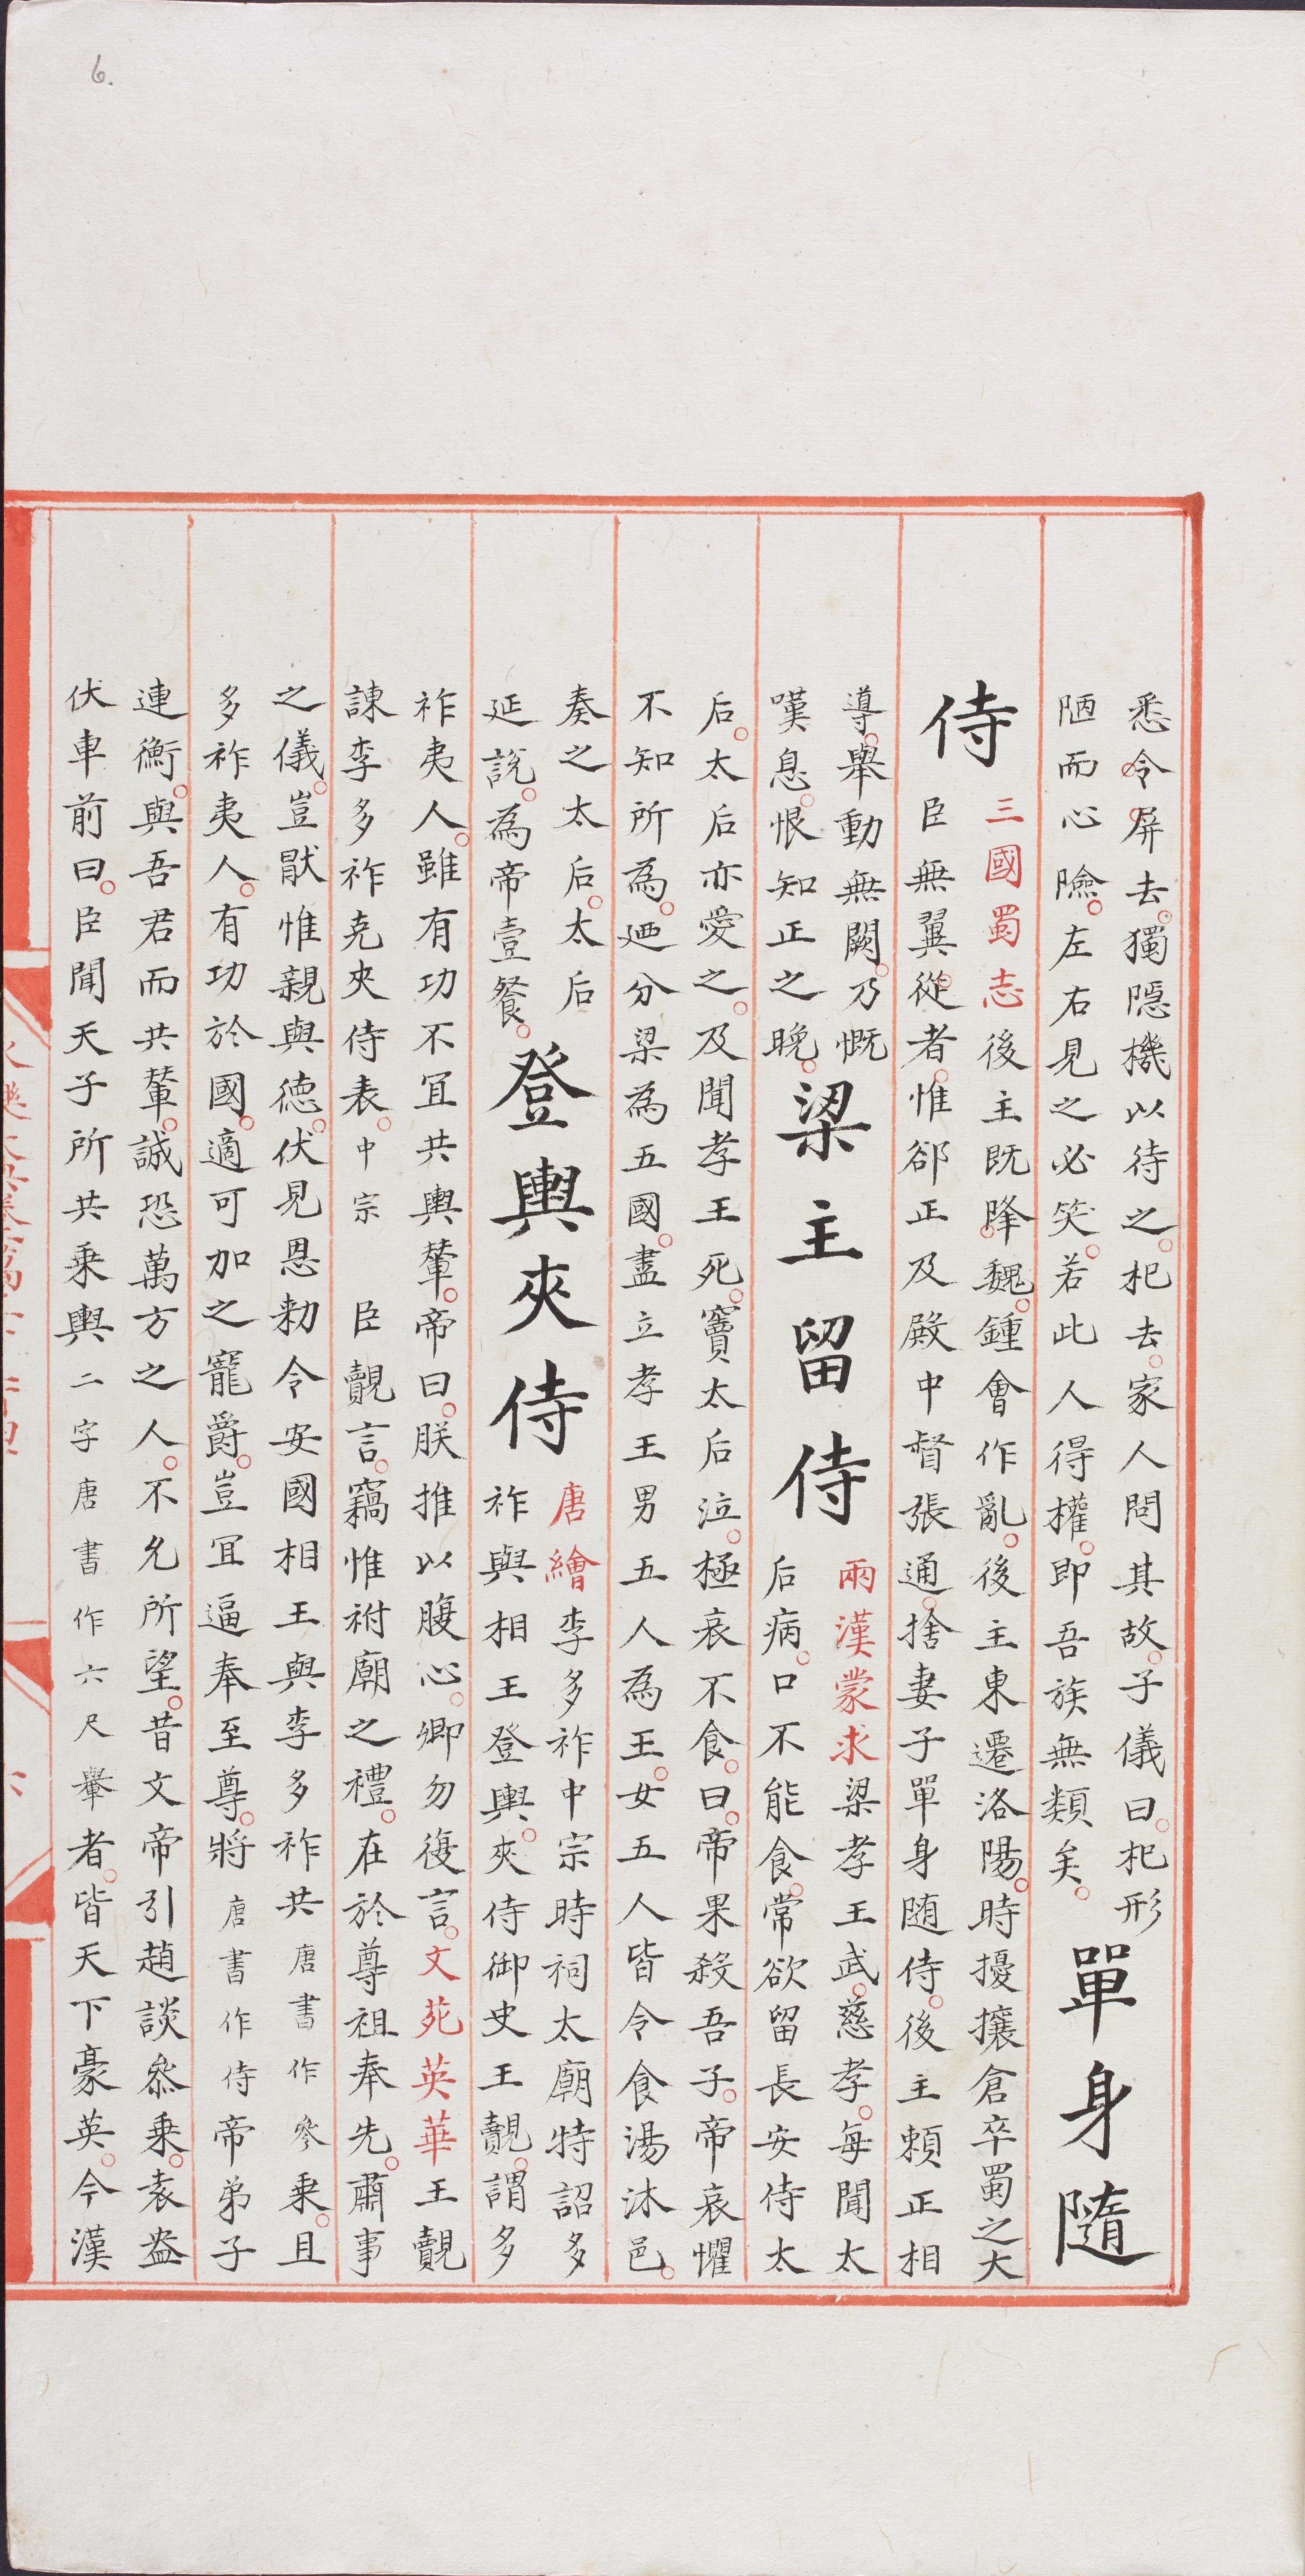 6.
悉令屏去。獨隱機以待之。杞去。家人問其故。子儀曰。杞形
陋而心險。左右見之必笑。若此人得權。即吾族無類矣。
單身隨
侍
三國蜀志後主既降魏。鍾會作亂。後主東遷洛陽。時擾攘倉卒蜀之大
臣無翼從者。惟郤正及殿中督張通。捨妻子單身随侍。後主賴正相
導。舉動無闕。乃慨
嘆息。恨知正之晚。
梁主留侍
兩漢蒙求梁孝王武。慈孝。每聞太
后病。口不能食。常欲留長安侍太
后。太后亦愛之。及聞孝王死。竇太后泣。極哀不食。曰。帝果殺吾子。帝哀懼
不知所為。廼分梁為五國。盡立孝王男五人為王。女五人皆令食湯沐邑。
奏之太后。太后
延說。為帝壹餐。
登輿夾侍
唐繪李多祚中宗時祠太廟特詔多
祚與相王登輿。夾侍御史王覿。謂多
祚夷人。雖有功不宜共輿輦。帝曰。朕推以腹心。卿勿復言。文苑英華王覿
諫李多祚克夾侍表。中宗 臣覿言。竊惟祔廟之禮。在於尊祖奉先。肅事
之儀。豈猒惟親與德。伏見恩勑令安國相王與李多祚共唐書作參乗。且
多祚夷人。有功於國。適可加之寵爵。豈宜逼奉至尊。將唐書作侍帝弟子
連衡。與吾君而共輦。誠恐萬方之人。不允所望。昔文帝引趙談叅乗。袁盎
伏車前曰。臣聞天子所共乗輿二字唐書作六尺轝者。皆天下豪英。今漢